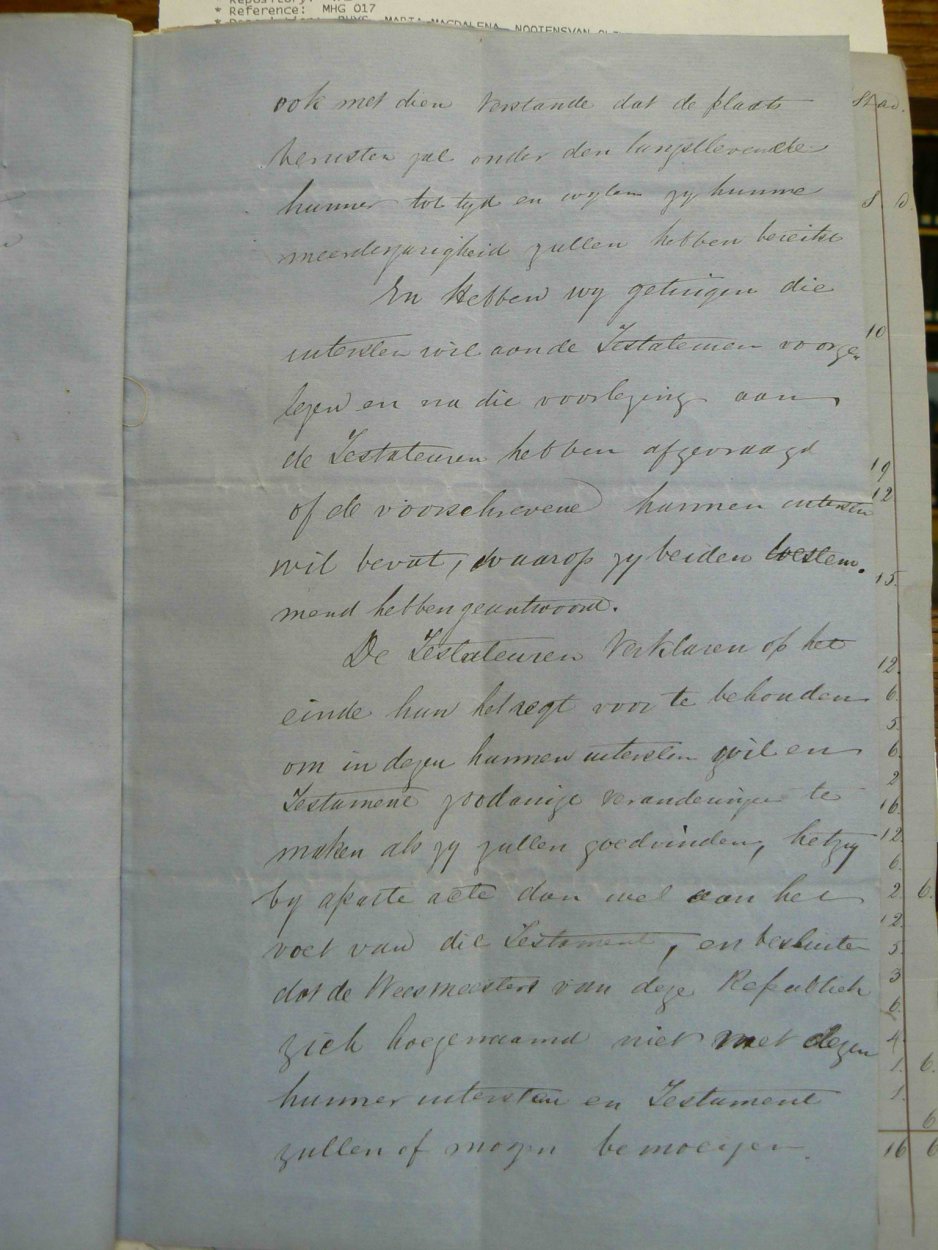 * Reference: MHG 017
MARIA MAGDALENA
ook met dien verstande dat de plaats
berusten zal onder den langstlevende
hunner tot tyd en wylen zy hunne
meerderjarigheid zullen hebben bereikt
En Hebben wy getuigen die
uitersten wil aan de Testateuren voorge
lezen en na die voorlezing aan
de Testateuren hebben afgevraagd
of de voorschrevene hunnen uitersten
wil bevat, waarop zy beiden toestem.
mend hebben geantwoord.
De Testateuren Verklaren op het
einde hun het regt voor te behouden
om in dezen hunnen uitersten wil en
Testament zoodanige veranderingen te
maken als zy zullen goedvinden, hetzy
by aparte acte dan wel aan het
voet van die Testament, en besluiten
dat de Weesmeesters van deze Republiek
zich hoegenaamd niet met dezen
hunner uitersten en Testament
zullen of mogen bemoeyen.
10
19
12
15.
12.
6.
5
6.
2
16.
12.
6.
2. 6.
12.
5.
3
6.
4.
1. 6.
1.
6
16 6